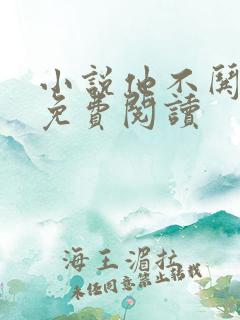 小說他不關
免費閱讀
海王湄拉
未经同意禁止转载